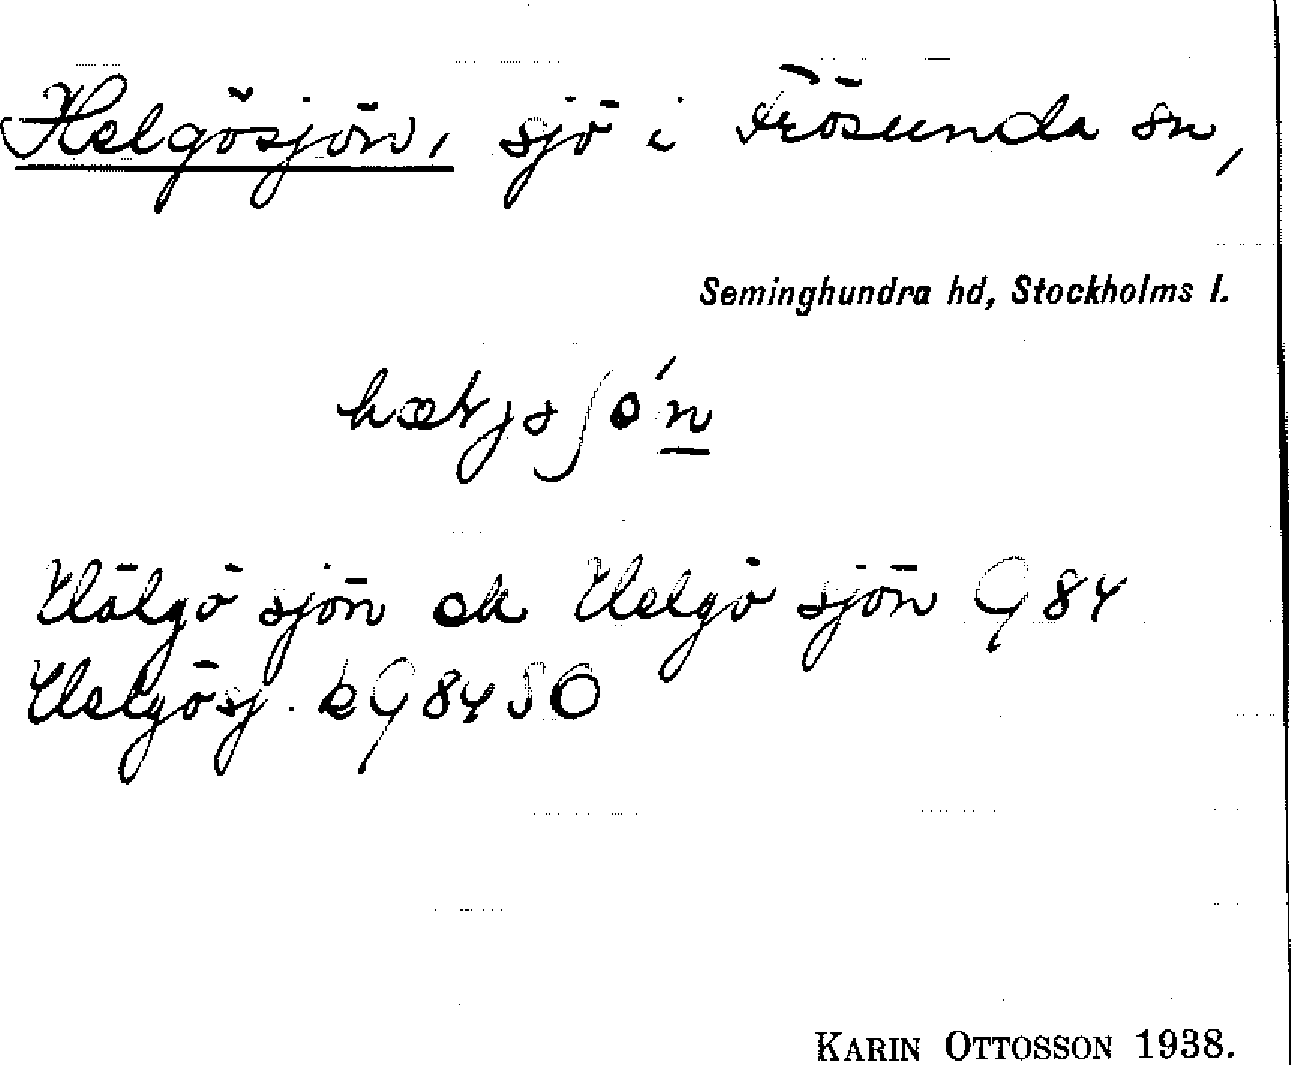 Helgösjön, sjö i Frösunda sn,
Seminghundra hd, Stockholms l.
Hälgö sjön ok Helgö sjön G 84
Helgösj. k G 84 SO
KARIN OTTOSSON 1938.